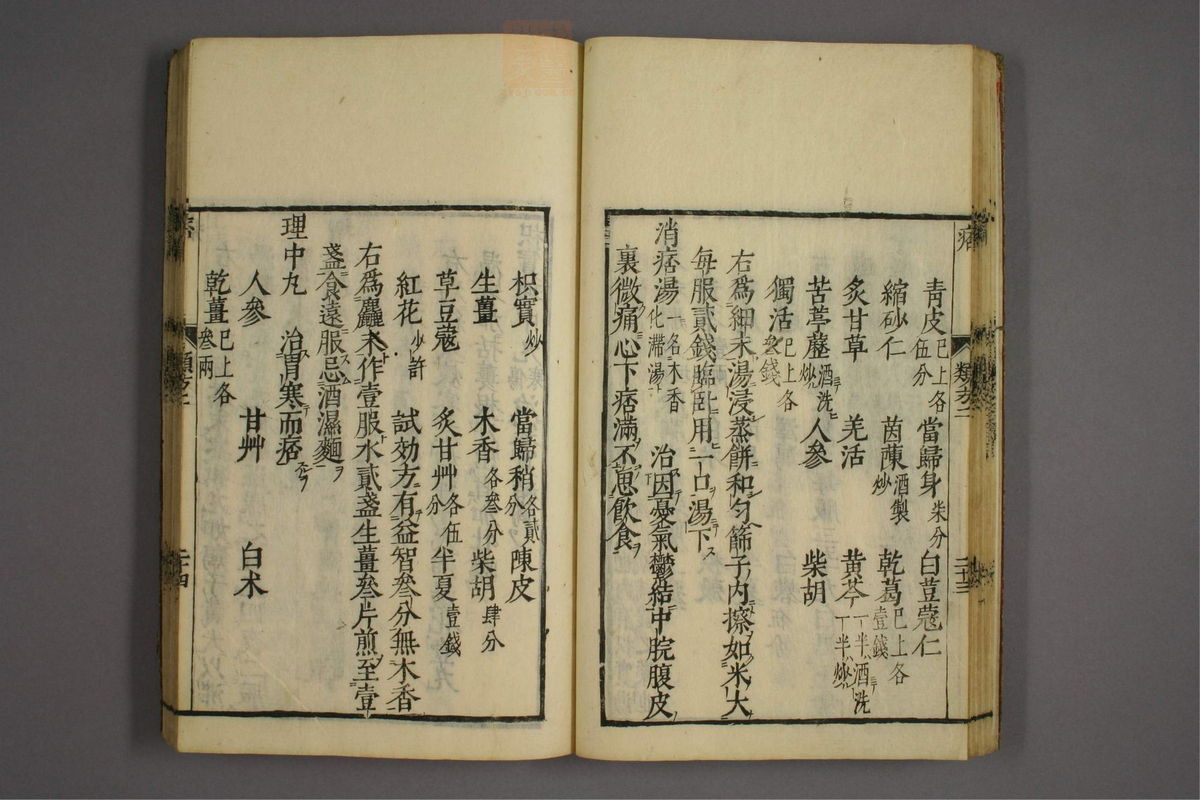 痞
類方二
二十三
青皮已上各伍分 當歸身柒分 白荳蔻仁
縮砂仁 茵蔯酒製炒 乾葛已上各壹錢
炙甘草 羌活 黄芩一半酒洗一半炒
苦葶藶酒洗炒 人參 柴胡
獨活已上各叄錢
右爲細末湯浸蒸餅和勻篩子內擦如米大
每服貳錢臨臥用一口湯下
消痞湯一名木香化滯湯 治因憂氣鬱結中脘腹皮
裏微痛心下痞滿不思飲食
枳實炒 當歸稍各貳分 陳皮
生薑 木香各叄分 柴胡肆分
草豆蔻 炙甘艸各伍分 半夏壹錢
紅花少許 試効方有益智叄分無木香
右爲麤末作壹服水貳盞生薑叄片煎至壹
盞食遠服忌酒濕麵
理中丸 治胃寒而痞
人參 甘艸 白朮
乾薑已上各叄兩
痞
類方二
二十四